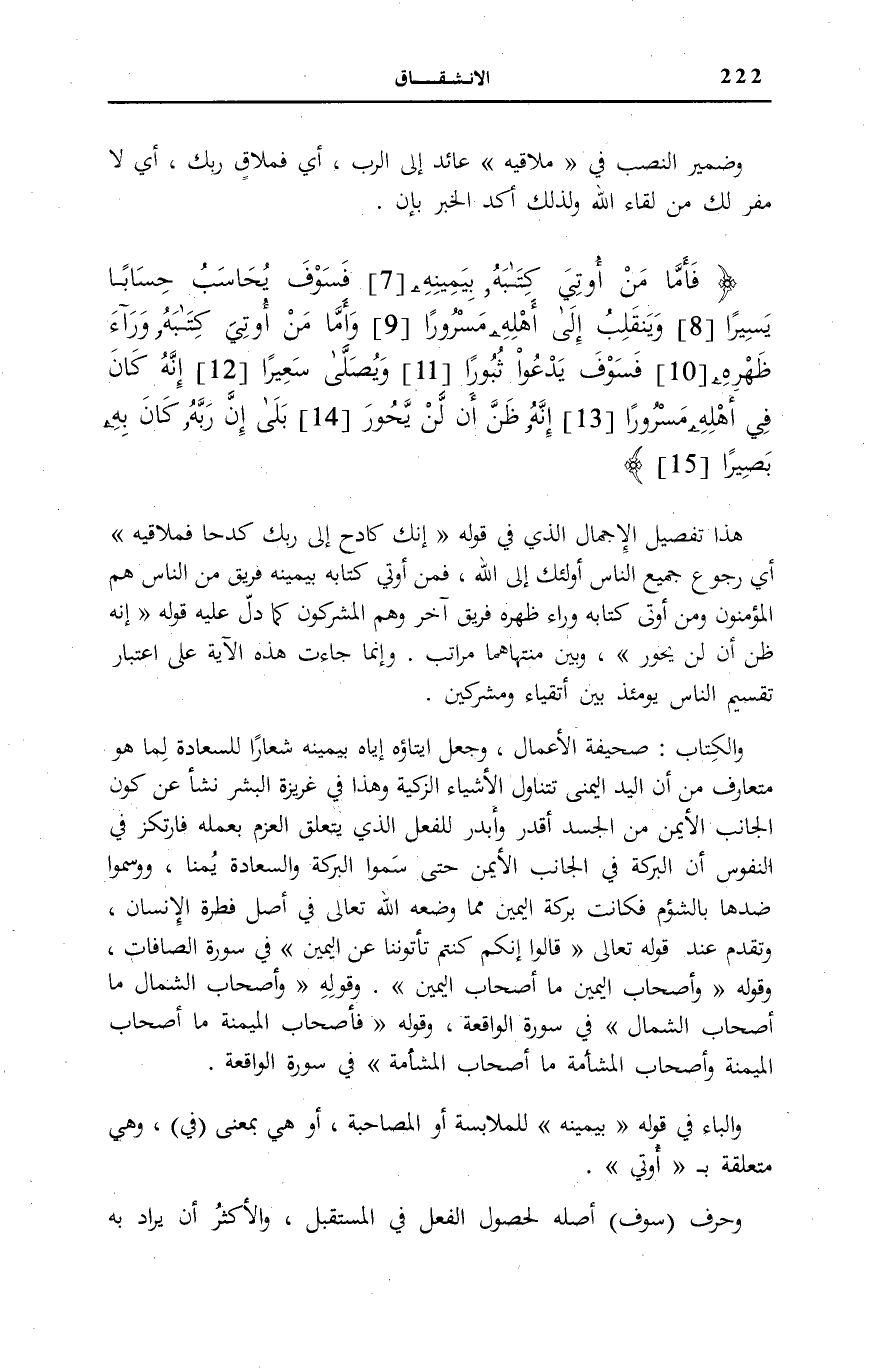 222
الانشقاق
وضمير النصب في « ملاقيه » عائد إلى الرب ، أي فملاقٍ ربك ، أي لا
مفر لك من لقاء الله ولذلك أكد الخبر بإن .
﴿ فَأَمَّا مَنْ أُوتِيَ كِتَٰبَهُۥ بِيَمِينِهِۦ [7] فَسَوْفَ يُحَاسَبُ حِسَابًا
يَسِيرًا [8] وَيَنقَلِبُ إِلَىٰ أَهْلِهِۦ مَسْرُورًا [9] وَأَمَّا مَنْ أُوتِيَ كِتَٰبَهُۥ وَرَآءَ
ظَهْرِهِۦ [10] فَسَوْفَ يَدْعُواْ ثُبُورًا [11] وَيُصَلَّىٰ سَعِيرًا [12] إِنَّهُۥ كَانَ
فِي أَهْلِهِۦ مَسْرُورًا [13] إِنَّهُۥ ظَنَّ أَن لَّنْ يَّحُورَ [14] بَلَىٰ إِنَّ رَبَّهُۥ كَانَ بِهِۦ
بَصِيرًا [15] ﴾
هذا تفصيل الإِجمال الذي في قوله « إنك كادح إلى ربك كدحا فملاقيه »
أي رجوع جميع الناس أولئك إلى الله ، فمن أوتي كتابه بيمينه فريق من الناس هم
المؤمنون ومن أوتّي كتابه وراء ظهره فريق آخر وهم المشركون كما دلّ عليه قوله « إنه
ظن أن لن يحور » ، وبين منتهاهما مراتب . وإنما جاءت هذه الآية على اعتبار
تقسيم الناس يومئذ بين أتقياء ومشركين .
والكِتاب : صحيفة الأعمال ، وجعل ايتاؤه إياه بيمينه شعارًا للسعادة لِما هو
متعارف من أن اليد اليمنى تتناول الأشياء الزكية وهذا في غريزة البشر نشأ عن كون
الجانب الأيمن من الجسد أقدر وأبدر للفعل الذي يتعلق العزم بعمله فارتكز في
النفوس أن البركة في الجانب الأيمن حتى سَموا البركة والسعادة يُمنا ، ووسموا
ضدها بالشؤم فكانت بركة اليمين مما وضعه الله تعالى في أصل فطرة الإنسان ،
وتقدم عند قوله تعالى « قالوا إنكم كنتم تأتوننا عن اليمين » في سورة الصافات ،
وقوله « وأصحاب اليمين ما أصحاب اليمين » . وقولِهِ « وأصحاب الشمال ما
أصحاب الشمال » في سورة الواقعة ، وقوله « فأصحاب الميمنة ما أصحاب
الميمنة وأصحاب المشأمة ما أصحاب المشأمة » في سورة الواقعة .
والباء في قوله « بيمينه » للملابسة أو المصاحبة ، أو هي بمعنى (في) ، وهي
متعلقة بـ « أُوتي » .
وحرف (سوف) أصله لحصول الفعل في المستقبل ، والأكثرُ أن يراد به